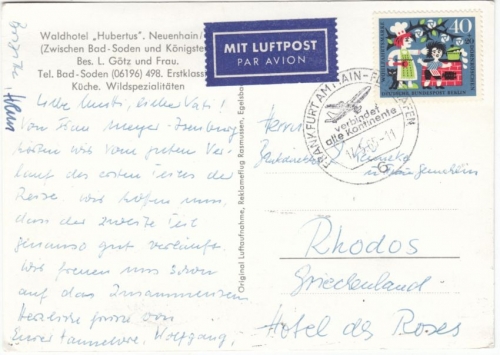 Waldhotel „Hubertus", Neuenhain/
(Zwischen Bad-Soden und Königste
Bes. L. Götz und Frau.
Tel. Bad-Soden (06196) 498. Erstklass
Küche. Wildspezialitäten
MIT LUFTPOST
PAR AVION
40
DEUTSCHE BUNDESPOST BERLIN
FRANKFURT AM MAIN - FLUGHAFEN
verbindet
alle Kontinente
Original Luftaufnahme, Reklameflug Rasmussen, Egelsba
Liebe Mutti, lieber Vati!
Von Frau Meyer-Isenburg
hörten wir vom guten Ver-
lauf des ersten Teiles der
Reise. Wir hoffen nun,
dass der zweite Teil
genauso gut verläuft.
Wir freuen uns schon
auf das Zusammensein
Herzliche Grüsse von
Eurer Hannelore, Wolfgang,
Herrn
Rhodos
Griechenland
Hotel des Roses